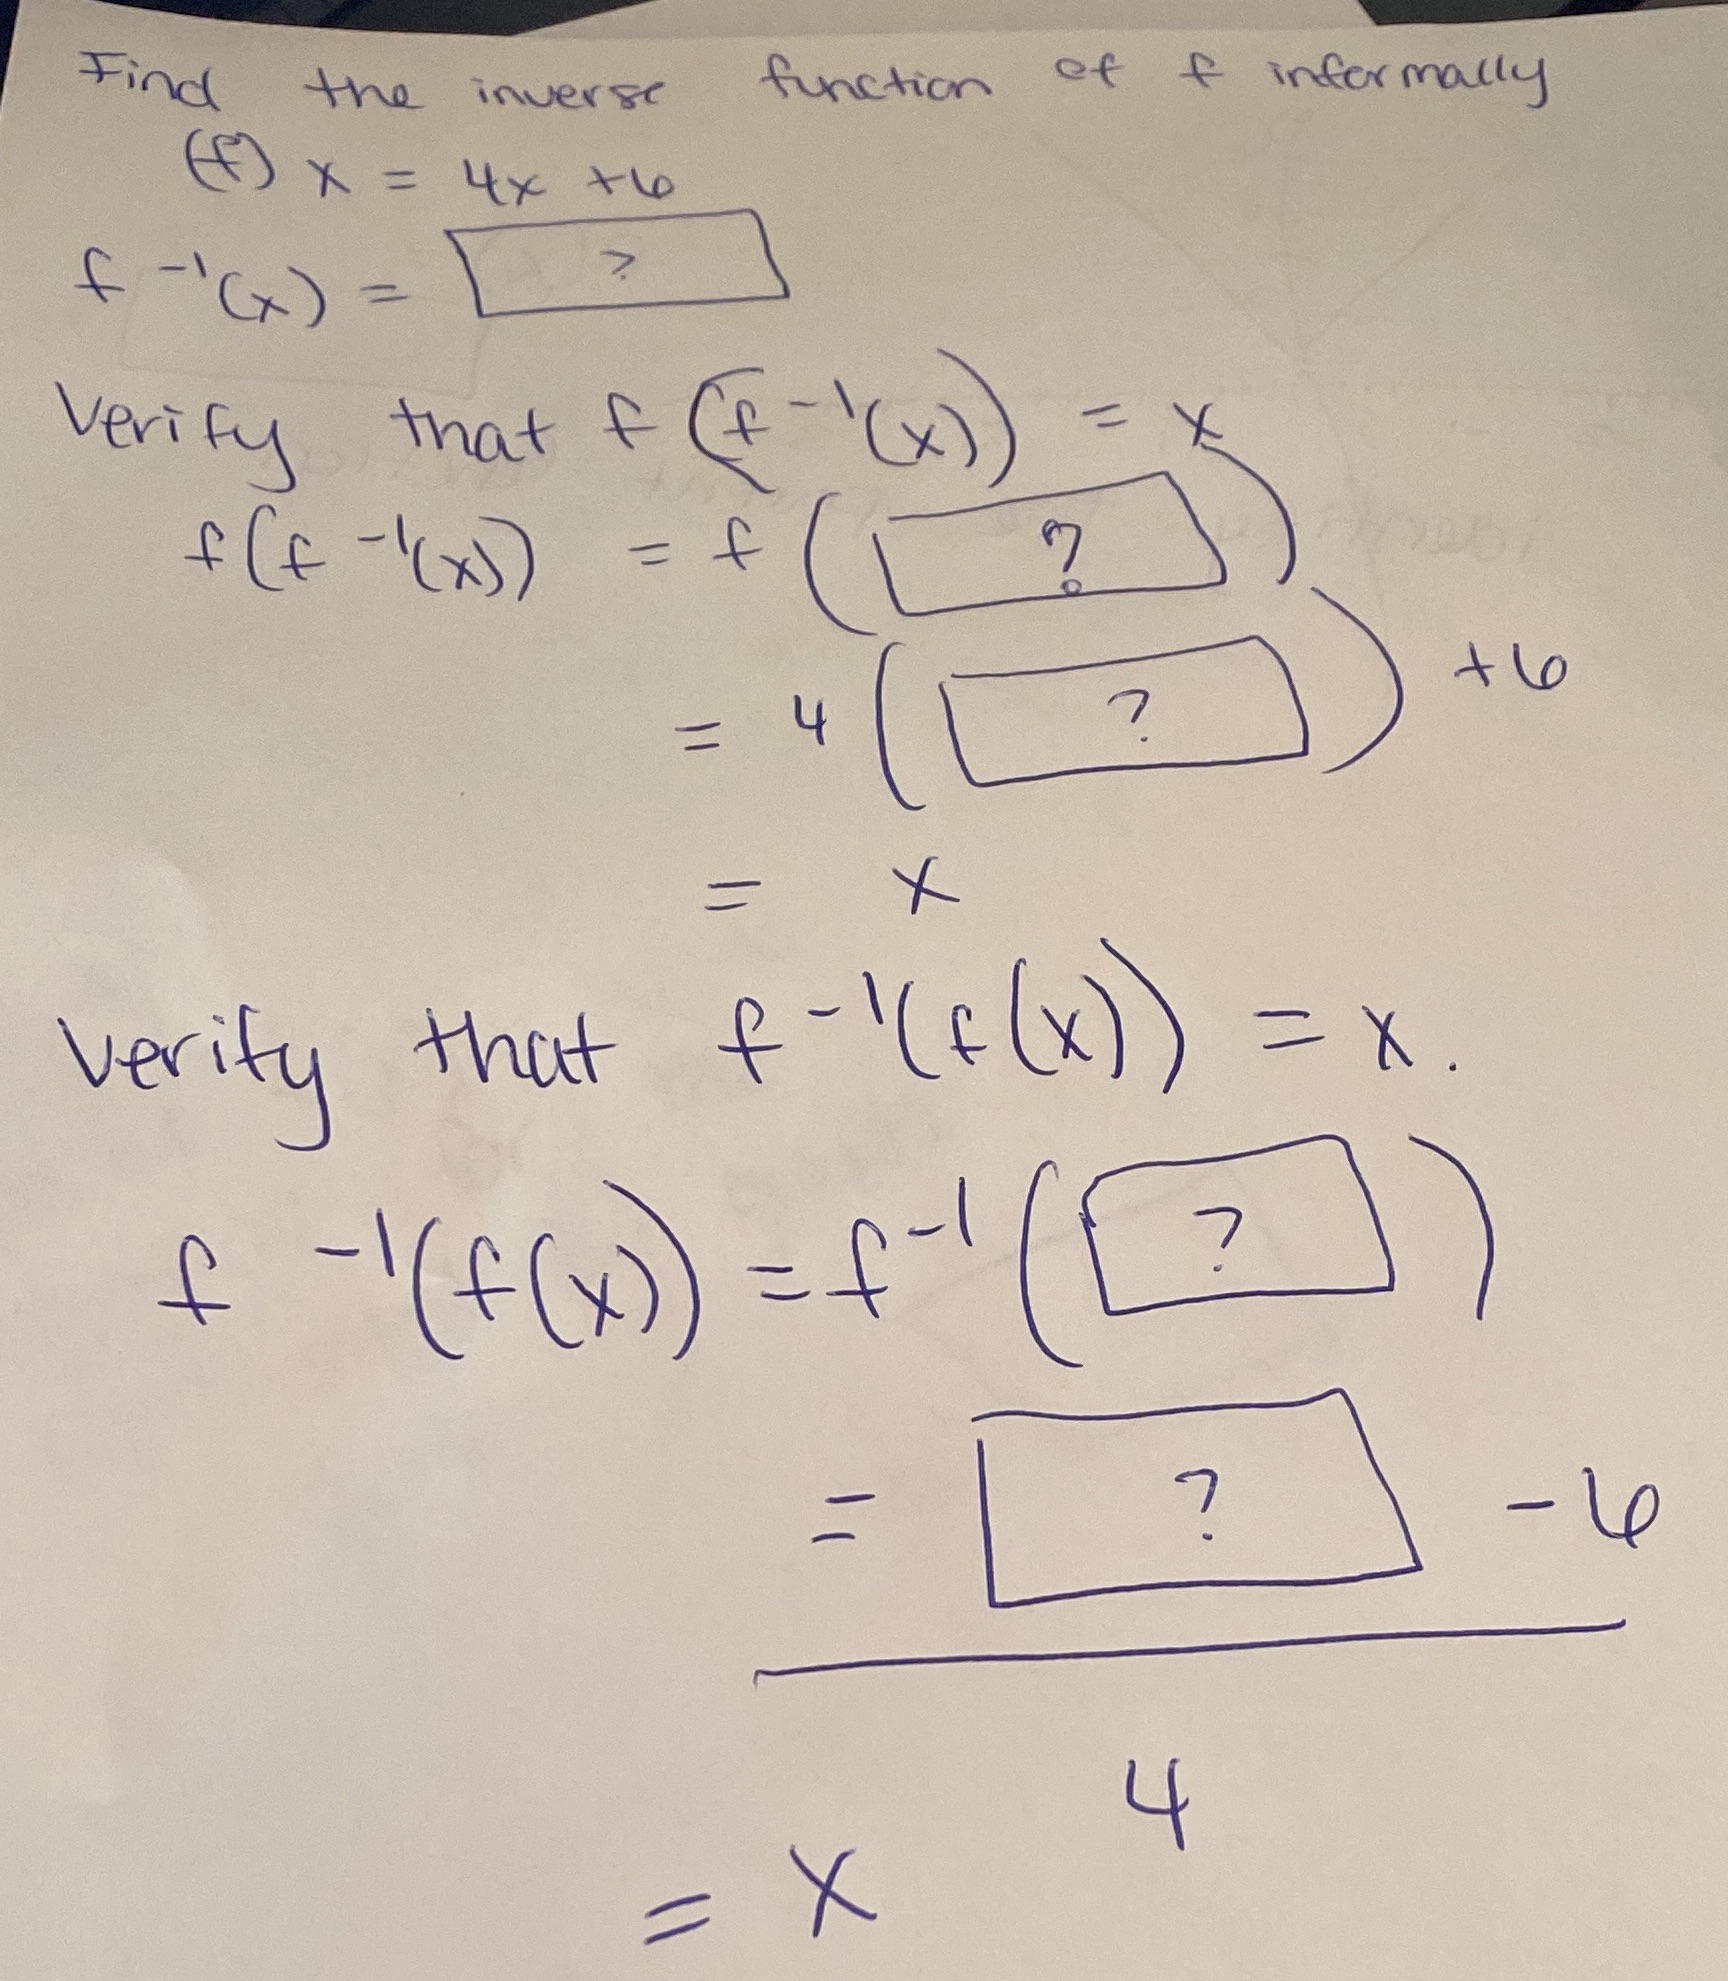 Find the inverse function of f informally
(f) x = 4x +6
f -1(x) = ?
Verify that f (f -1(x)) = x
f(f -1(x)) = f ( ? )
= 4 ( ? ) +6
= x
Verify that f -1(f(x)) = x.
f -1(f(x)) = f -1 ( ? )
= ? - 6
4
= x